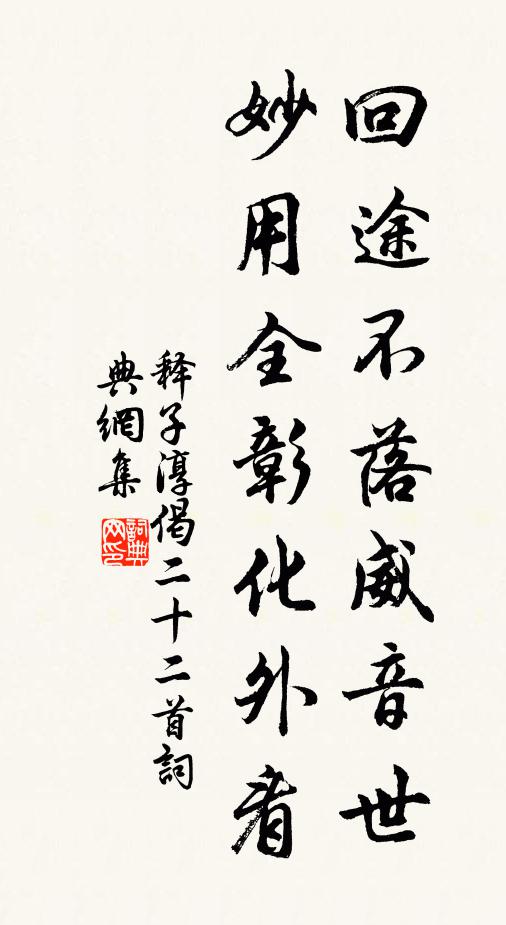 回途不落威音世
妙用全彰化外看
释子淳偈二十二首詞
典網集
詞典网印